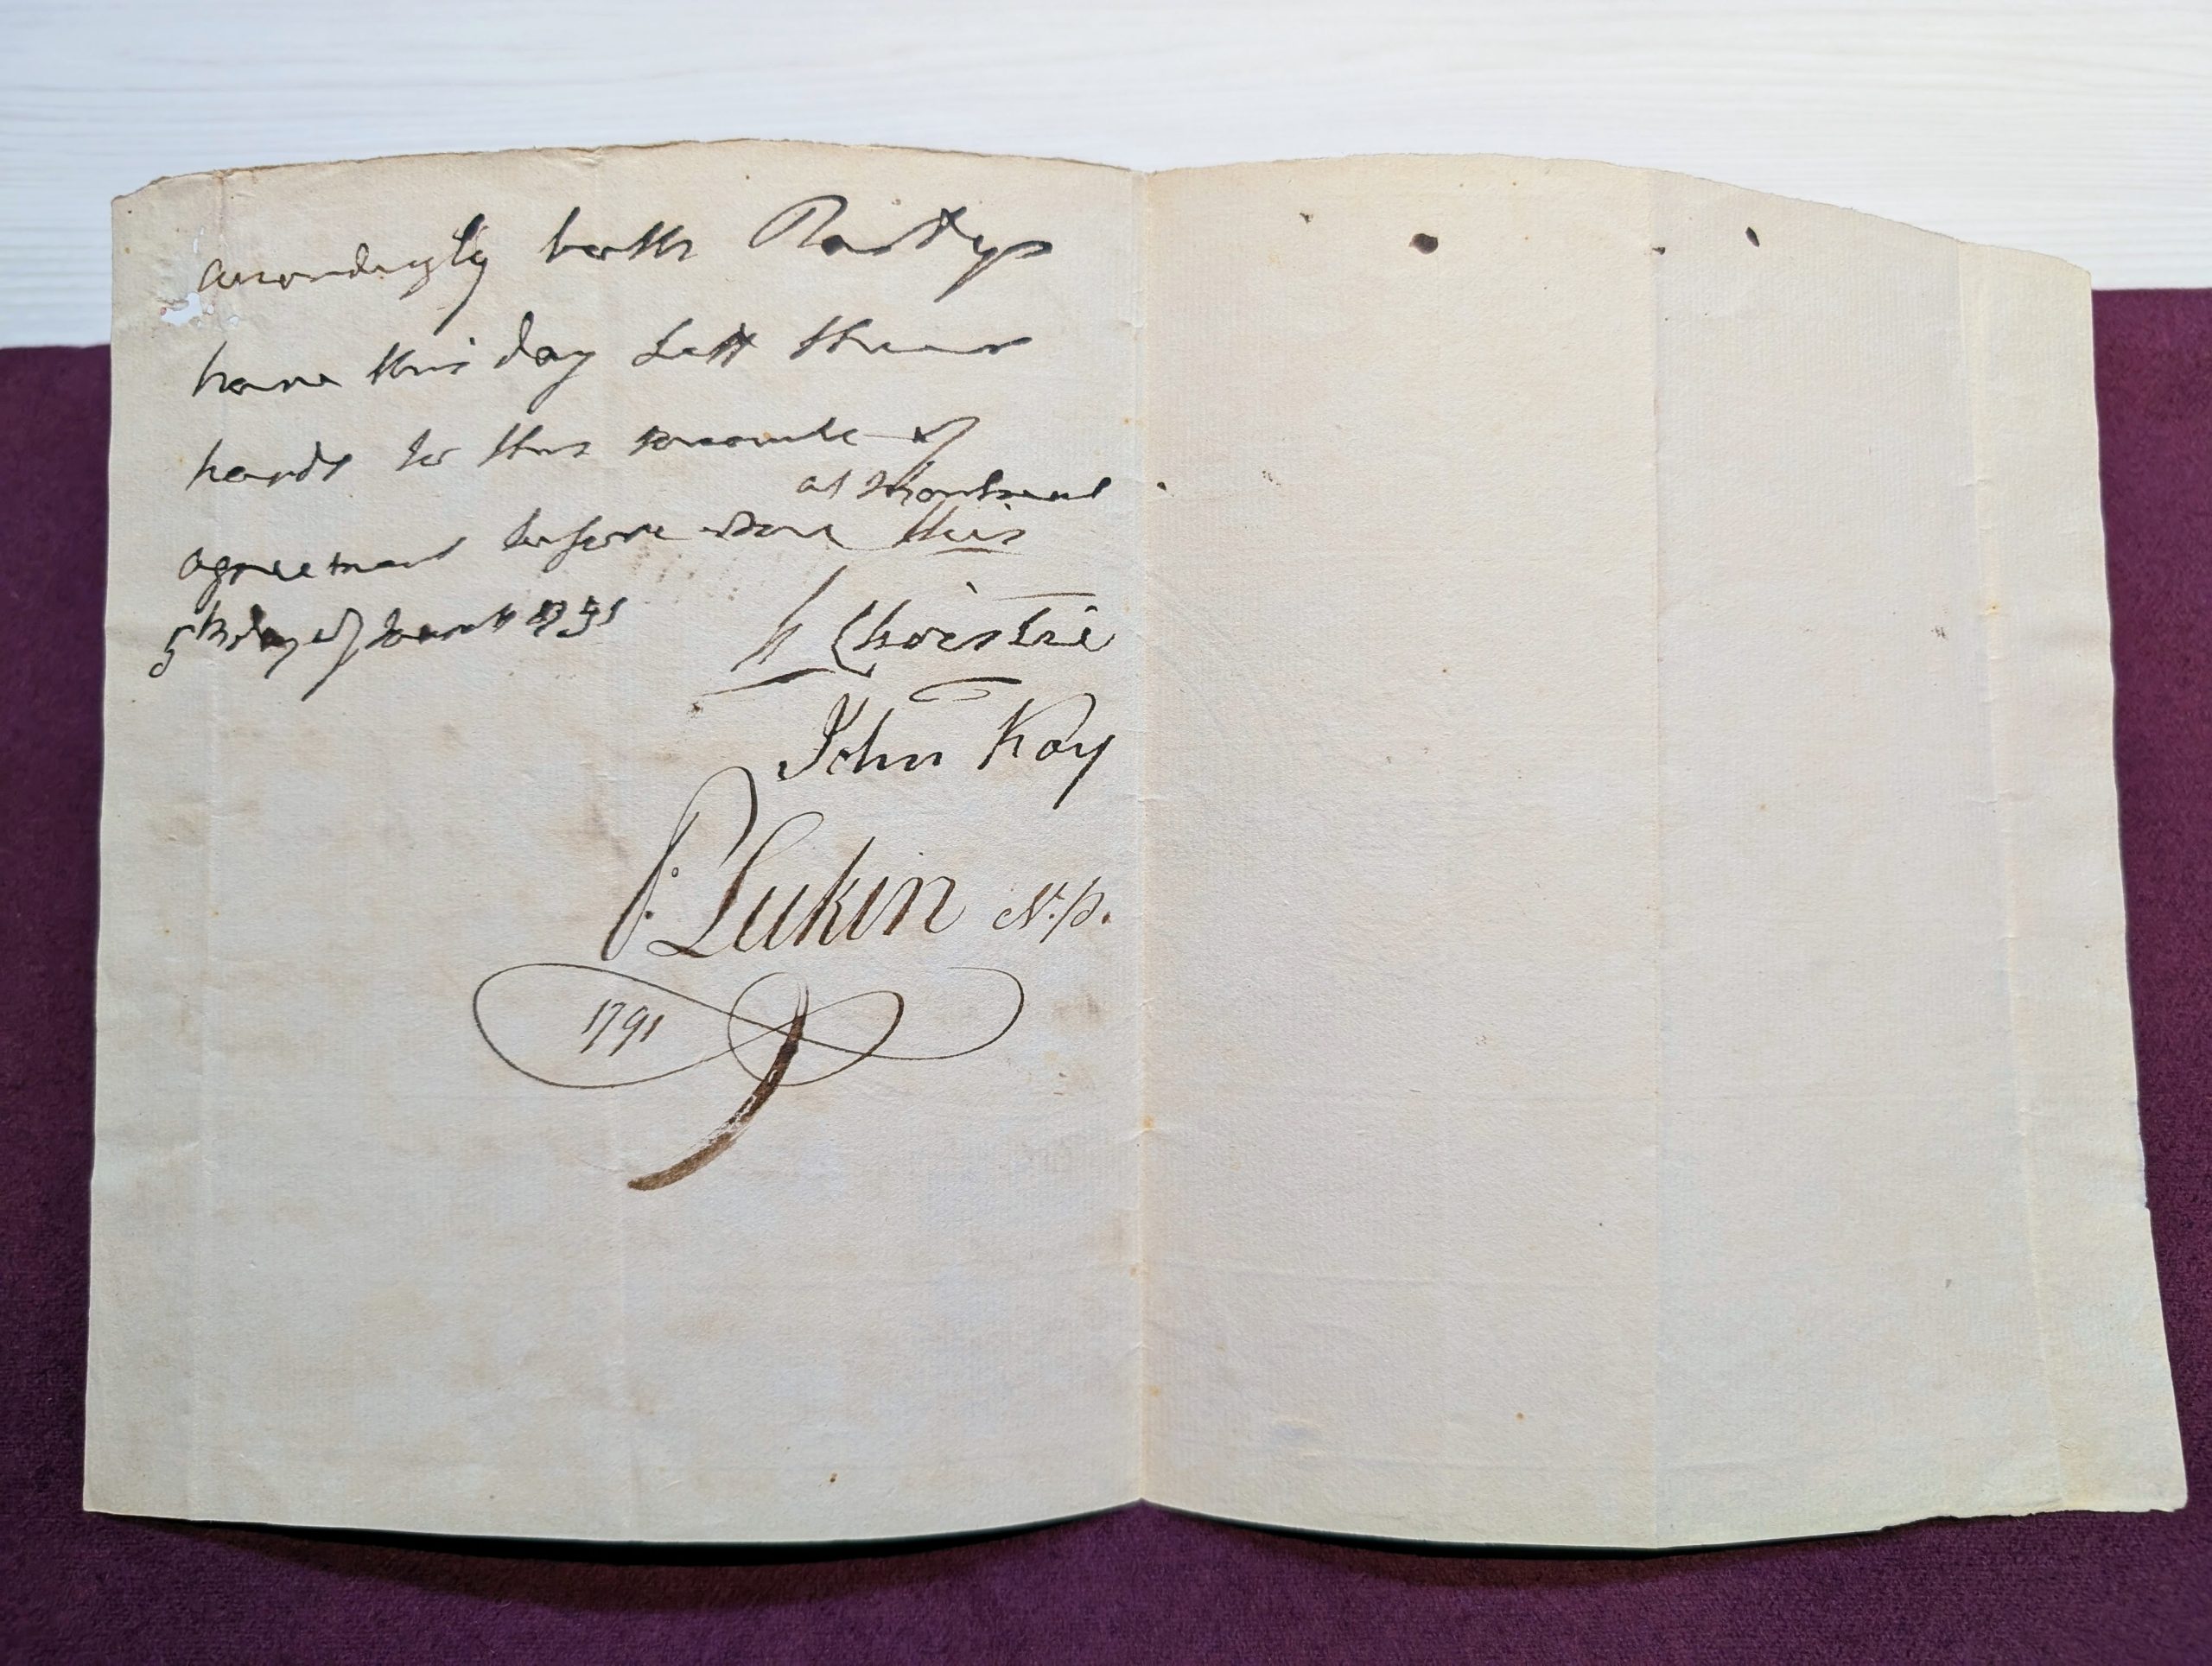 accordingly both Partys
have this day Sett their
hands to this
at Montreal
agreement before this
5th day of 1791
Christie
John Kay
P: Lukin N.P.
1791